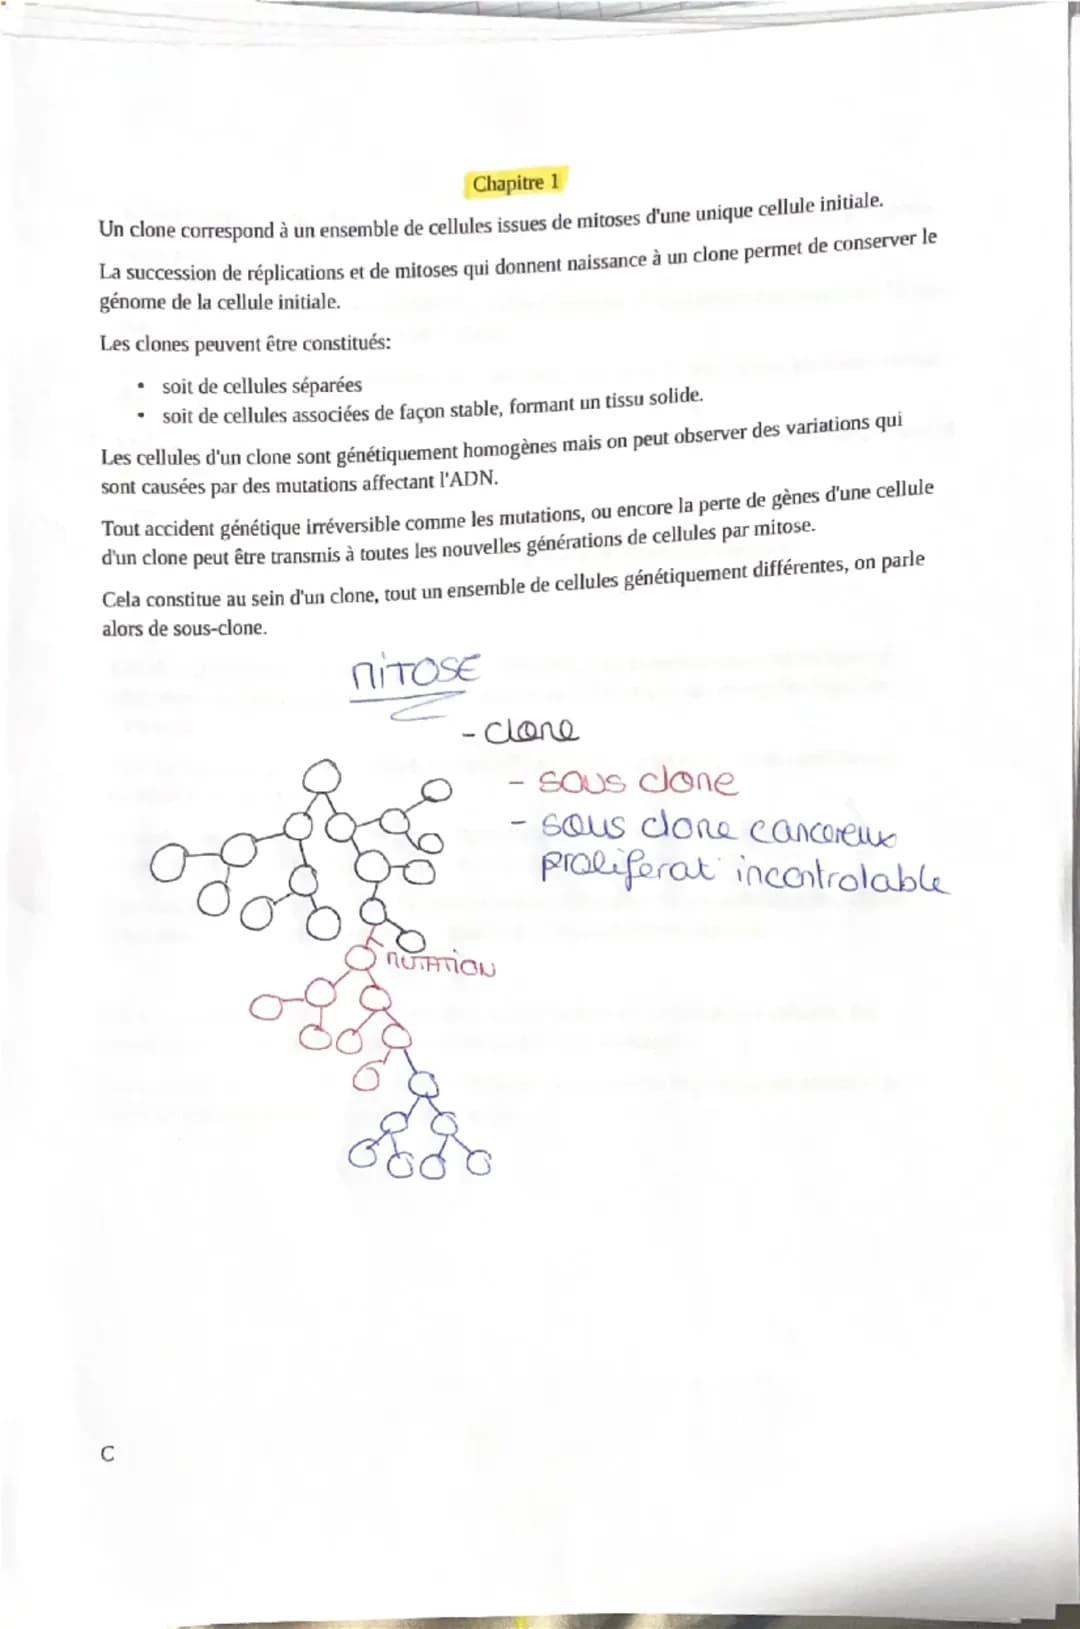 Chapitre 1
Un clone correspond à un ensemble de cellules issues de mitoses d'une unique cellule initiale.
La succession de réplications et de mitoses qui donnent naissance à un clone permet de conserver le
génome de la cellule initiale.
Les clones peuvent être constitués:
• soit de cellules séparées
• soit de cellules associées de façon stable, formant un tissu solide.
Les cellules d'un clone sont génétiquement homogènes mais on peut observer des variations qui
sont causées par des mutations affectant l'ADN.
Tout accident génétique irréversible comme les mutations, ou encore la perte de gènes d'une cellule
d'un clone peut être transmis à toutes les nouvelles générations de cellules par mitose.
Cela constitue au sein d'un clone, tout un ensemble de cellules génétiquement différentes, on parle
alors de sous-clone.
MITOSE
- clone
- sous clone
- sous clone cancereux
proliferat° incontrolable
MUTATION
C